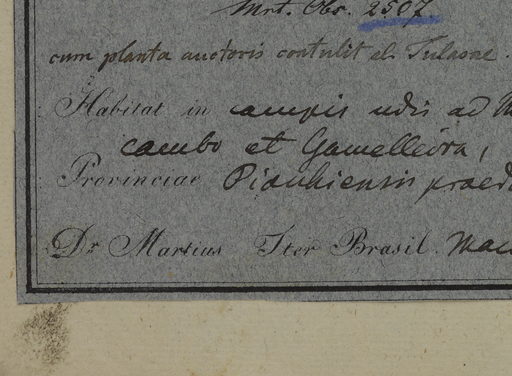 Mrt. Obs. 2507
cum planta auctoris contulit el. Tulasne.
Habitat in campis udis ad M
cambo et Gamelleira,
Provinciae Piauhiensis praed
Dr Martius Iter Brasil. Mai